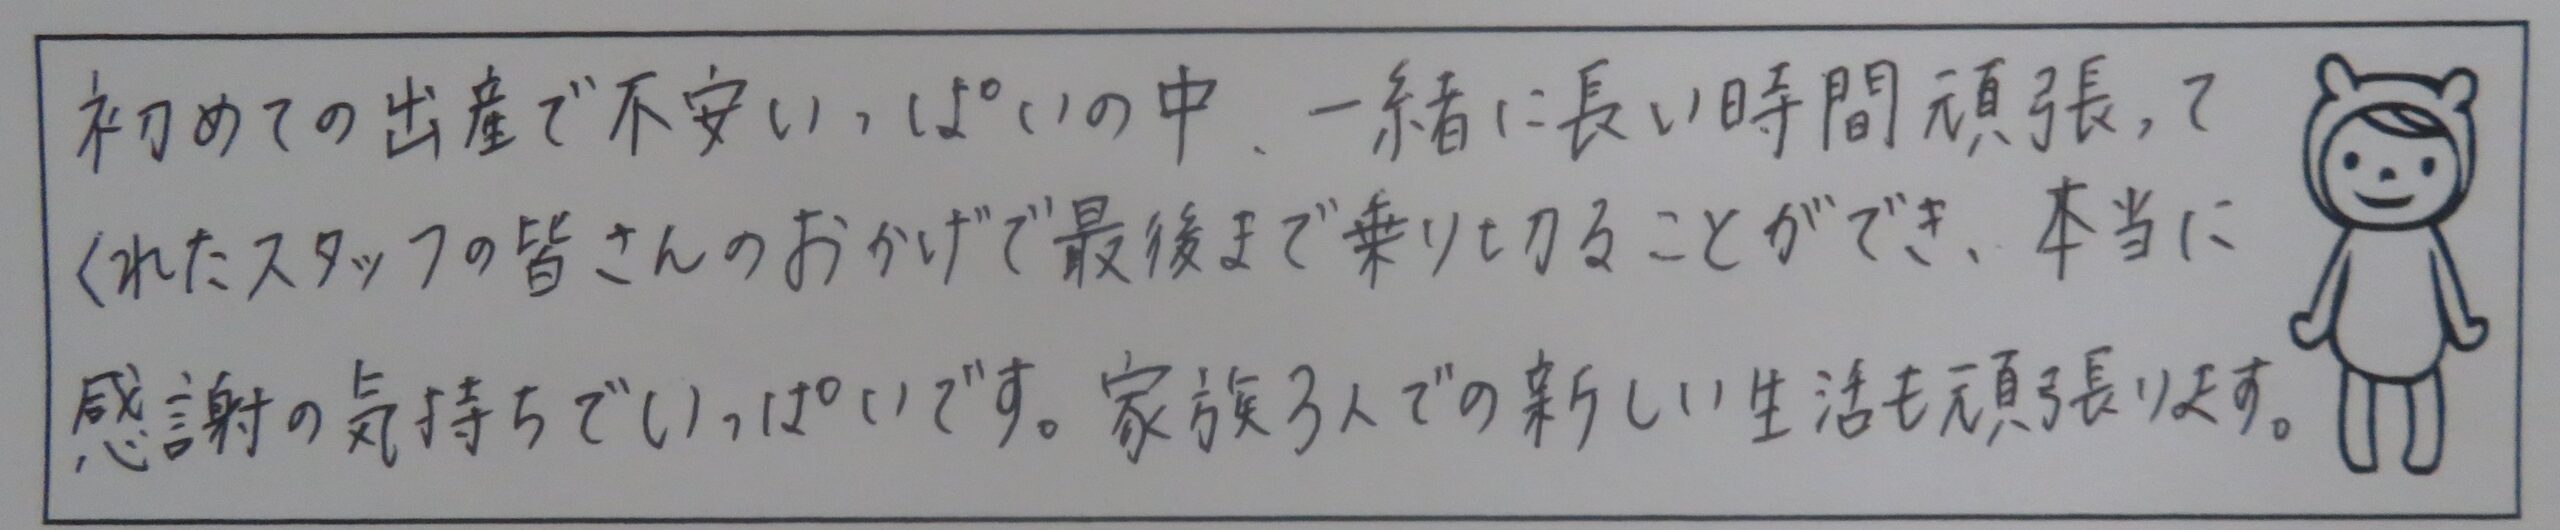 初めての出産で不安いっぱいの中、一緒に長い時間頑張って
くれたスタッフの皆さんのおかげで最後まで乗り切ることができ、本当に
感謝の気持ちでいっぱいです。家族3人での新しい生活も頑張ります。